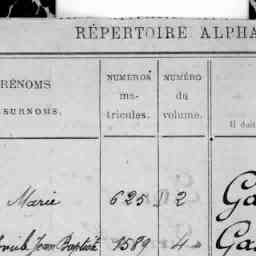 RÉPERTOIRE ALPHA
RÉNOMS
SURNOMS.
NUMÉROS
ma-
tricules.
NUMÉRO
du
volume.
Il doit
Marie 625 2 Ga
Jean Baptiste 1589 4 Gas